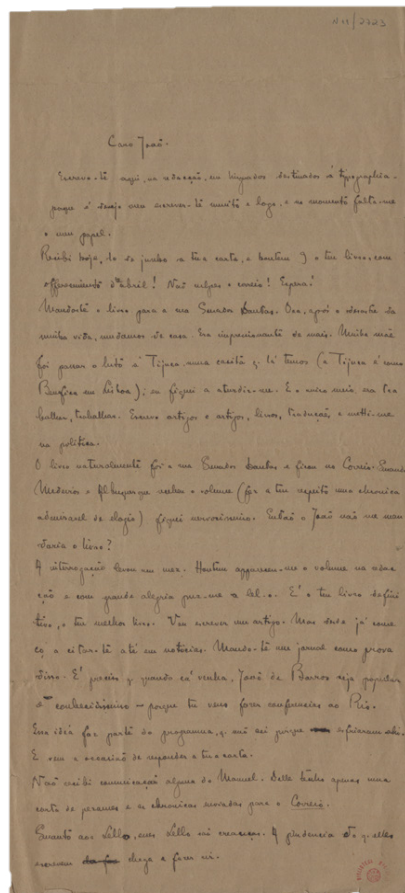 N11/2723
Caro João.
Escrevo-te aqui, na redacção, em linguados destinados á typographia,
porque é desejo meu escrever-te muito e logo, e no momento falta-me
o meu papel.
Recibi hoje, 10 de junho a tua carta, e hontem 9 o teu livro, com
offerecimento d'abril! Não culpes o correio! Espera!
Mandaste o livro para a rua Senador Dantas. Ora, após o desastre da
minha vida, mudamos de casa. Era impressionante de mais. Minha mãe
foi passar o luto á Tijuca numa casita q. lá temos (a Tijuca é uma
Bemfica em Lisboa); eu fiquei a aturdir-me. E a coisa unica, na
trabalhar, trabalhar. Escrevo artigos e artigos, livros, e metti-me
na politica.
O livro naturalmente foi a rua Senador Dantas e ficou no Correio. Quando
Medeiros e Albuquerque recebeu o volume (fez a teu respeito uma chronica
admiravel de elogio) fiquei nervosissimo. Então o João não me man
daria o livro?
A interrogação levou um mez. Hontem appareceu-me o volume na redac
ção e com grande alegria puz-me a lel-o. E' o teu livro defini
tivo, o teu melhor livro. Vou escrever um artigo. Mas desde já come
ço a citar-te até em noticias. Mando-te um jornal como prova
disso. E' preciso q. quando cá venha, João de Barros seja popular
e conhecidissimo — porque tu vens fazer conferencias ao Rio.
Essa idéa faz parte do programma, q. não sei porque
E vem a occasião de responder a tua carta.
Não recibi comunicação alguma do Manuel. Delle tenho apenas uma
carta de pezames e as chronicas enviadas para o Correio.
Quanto aos Lello, esses Lello são creanças. A prudencia d'q. elles
escrevem chega a fazer rir.